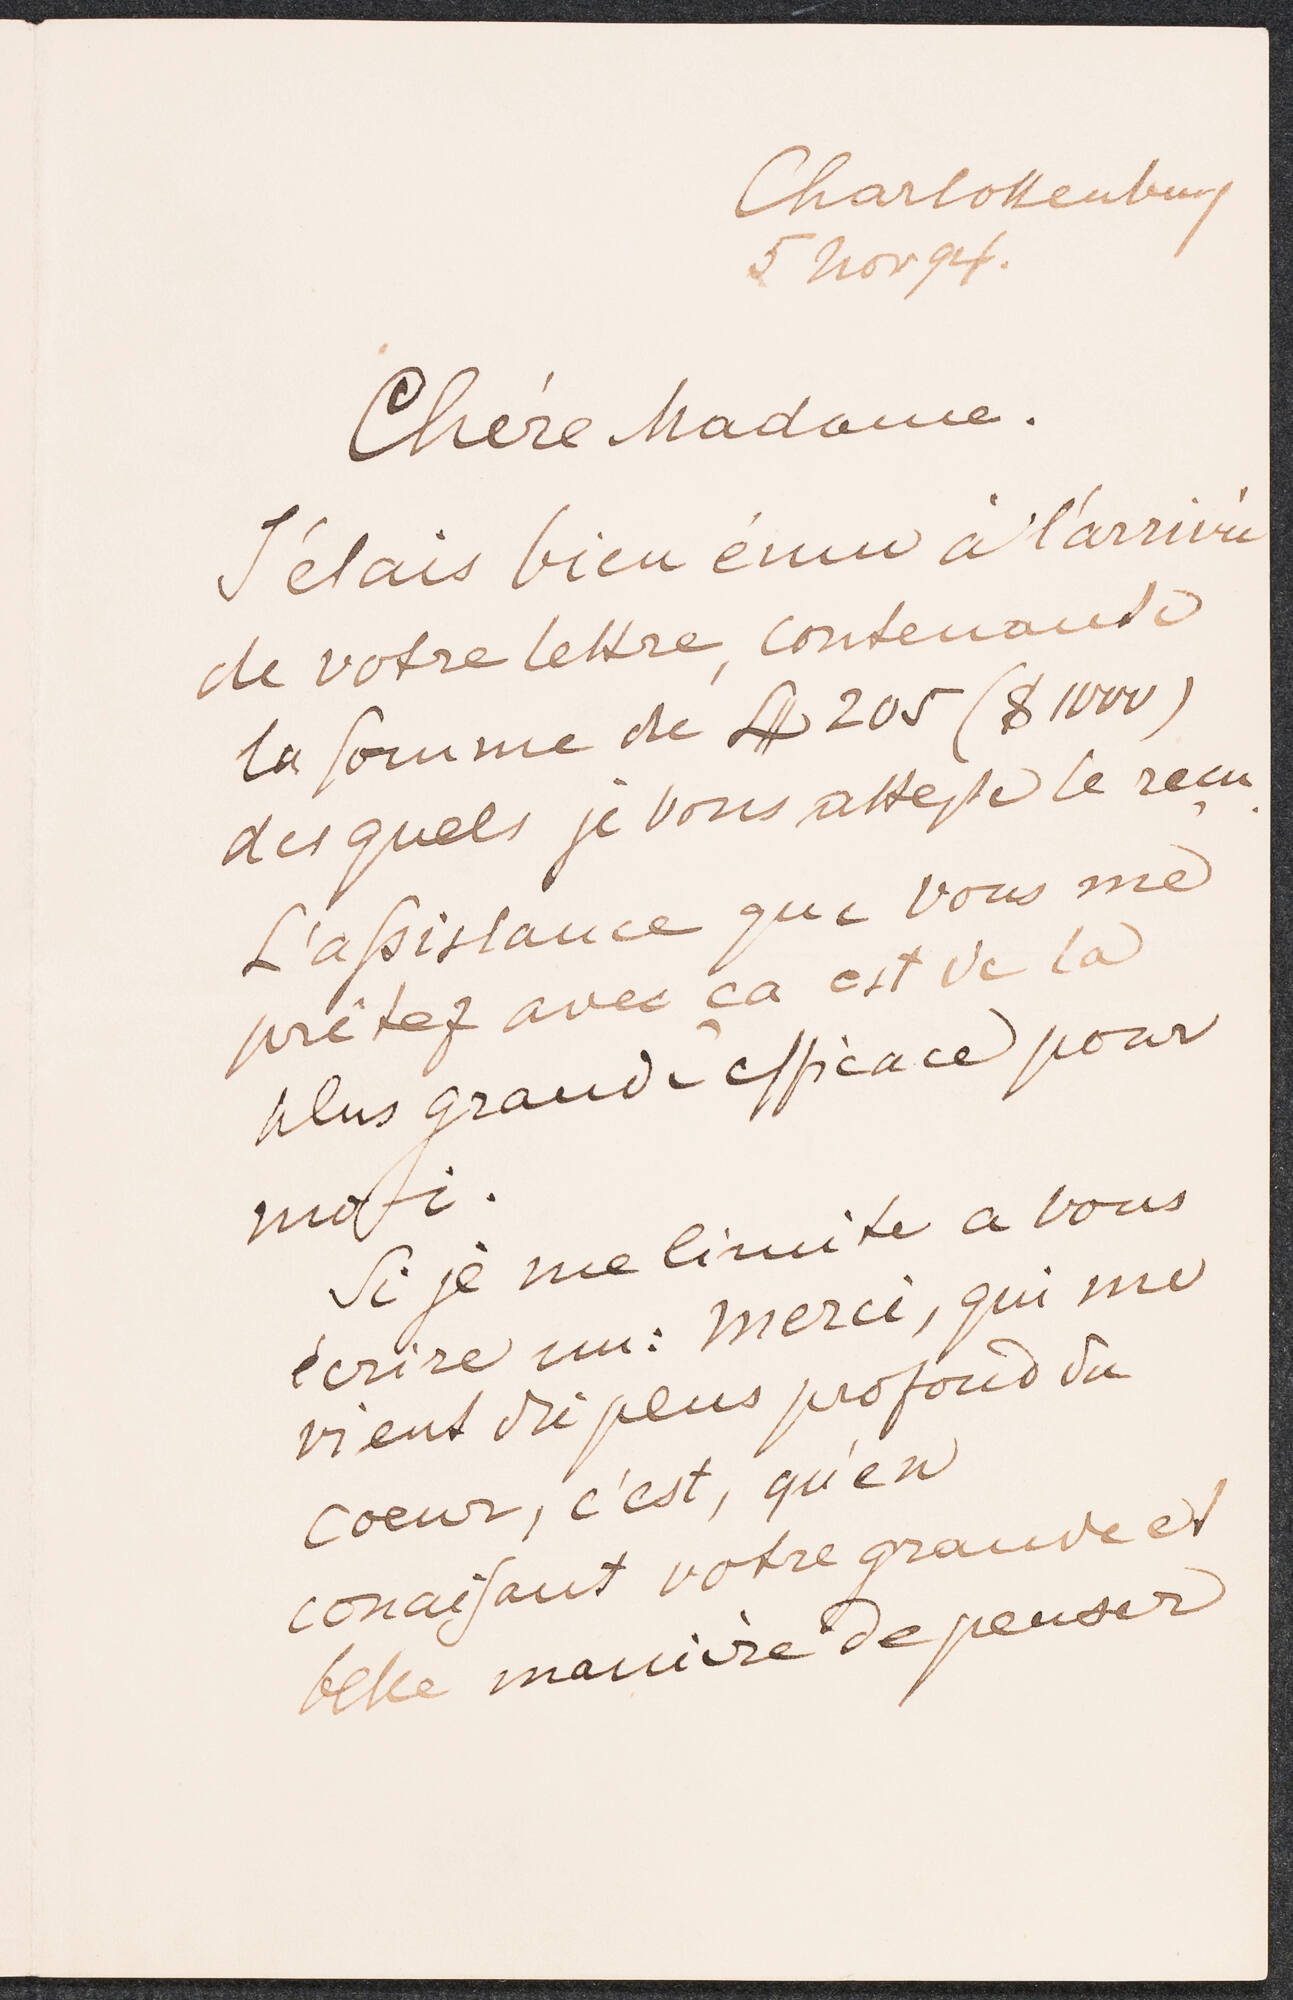 Charlottenburg
5 Nov 94.
Chére Madame.
J'étais bien ému à l'arrivée
de votre lettre, contenante
la somme de £ 205 ($ 1000)
desquels je vous atteste le reçu.
L'assistance que vous me
prêtez avec ça est de la
plus grande efficace pour
moi.
Si je me limite a vous
écrire un: Merci, qui me
vient du plus profond du
coeur, c'est, qu'en
conaissant votre grande et
belle manière de penser